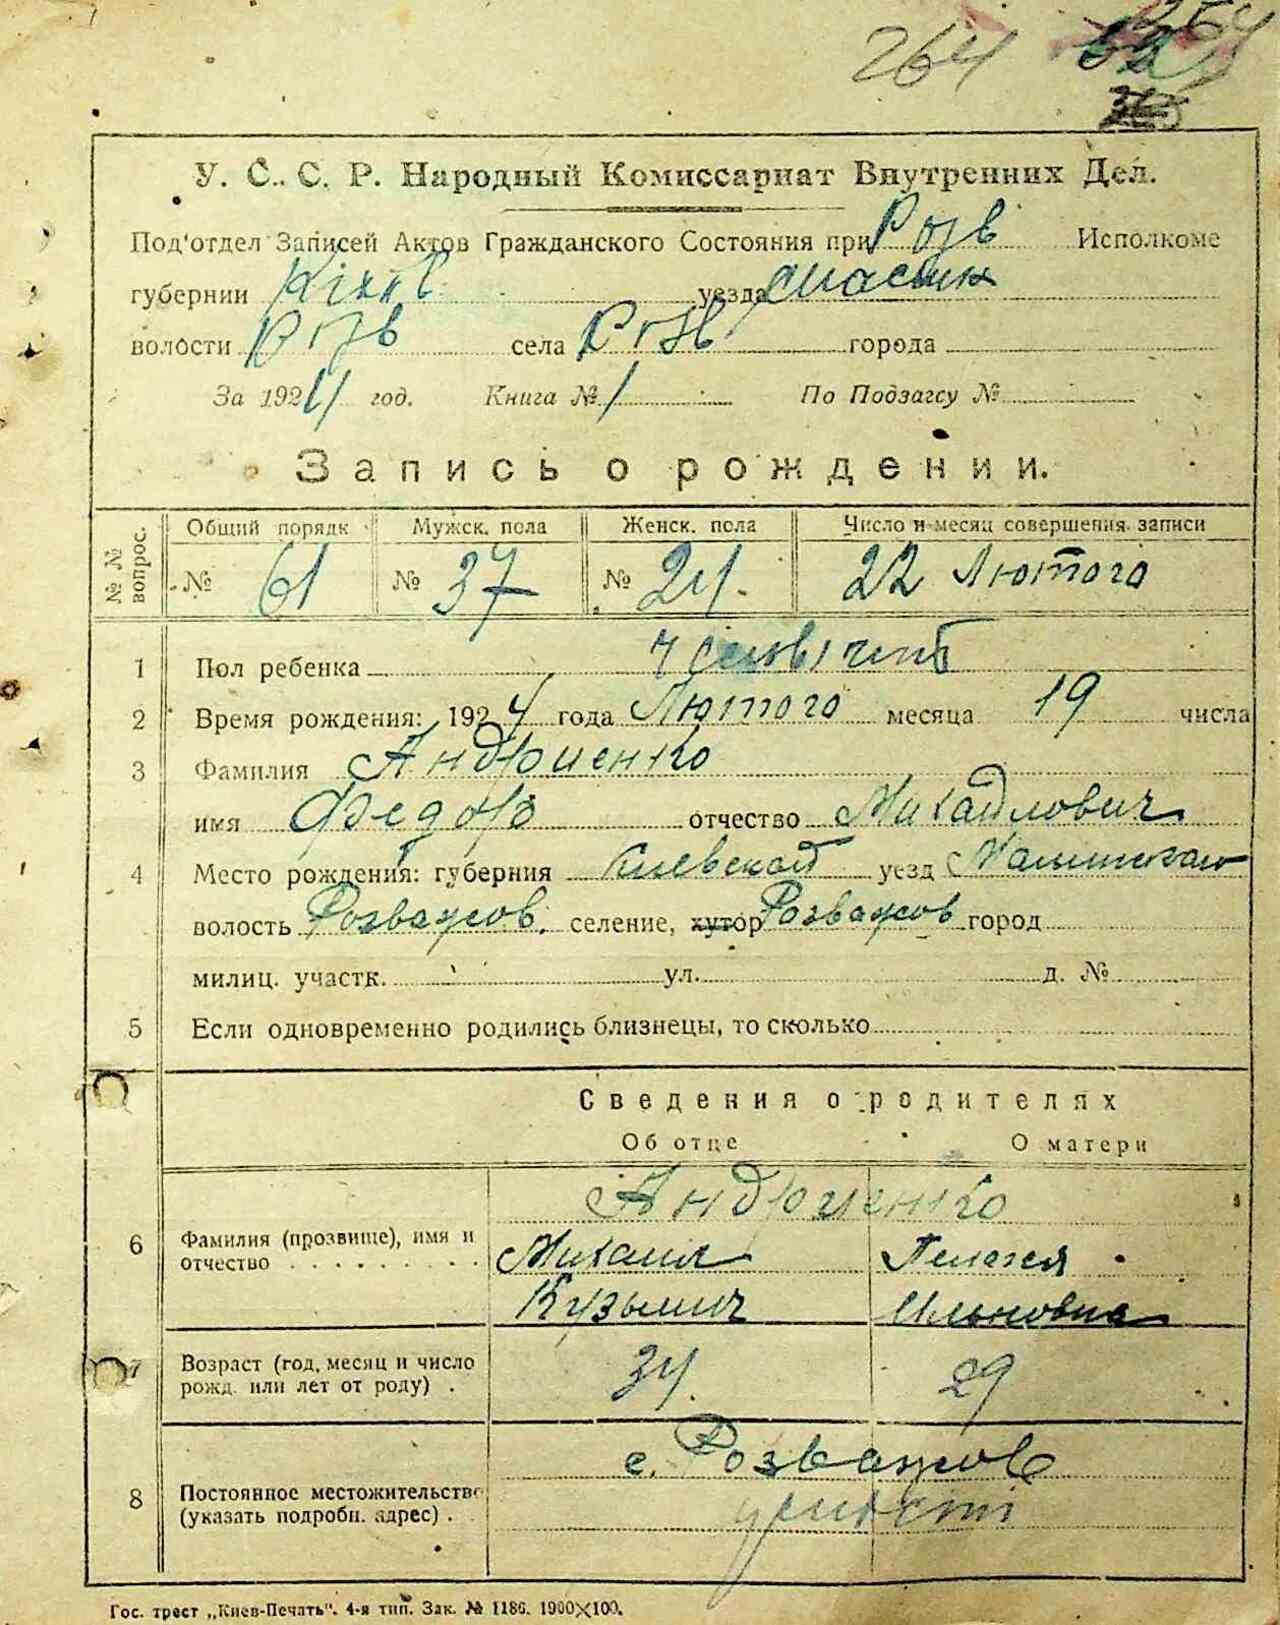 264
У. С. С. Р. Народный Комиссариат Внутренних Дел.
Под'отдел Записей Актов Гражданского Состояния при Розв Исполкоме
губернии Київ уезда
волости Розв села Розв города
За 1924 год. Книга № 1 По Подзагсу №
Запись о рождении.
№№ вопрос. Общий порядк Мужск. пола Женск. пола Число и месяц совершения записи
№ 61 № 37 № 24. 22 Лютого
1 Пол ребенка
2 Время рождения: 1924 года Лютого месяца 19 числа
3 Фамилия Андриенко
имя Федор отчество Михайлович
4 Место рождения: губерния Киевской уезд
волость Розважов. селение, хутор Розважов город
милиц. участк. ул. д. №
5 Если одновременно родились близнецы, то сколько
Сведения о родителях
Об отце О матери
Андриенко
6 Фамилия (прозвище), имя и отчество Михаил Пелагея
Кузьмич Ильиновна
7 Возраст (год, месяц и число рожд. или лет от роду) . 34. 29
8 Постоянное местожительство (указать подробн. адрес) . с. Розважов
Гос. трест „Киев-Печать". 4-я тип. Зак. № 1186. 1900×100.